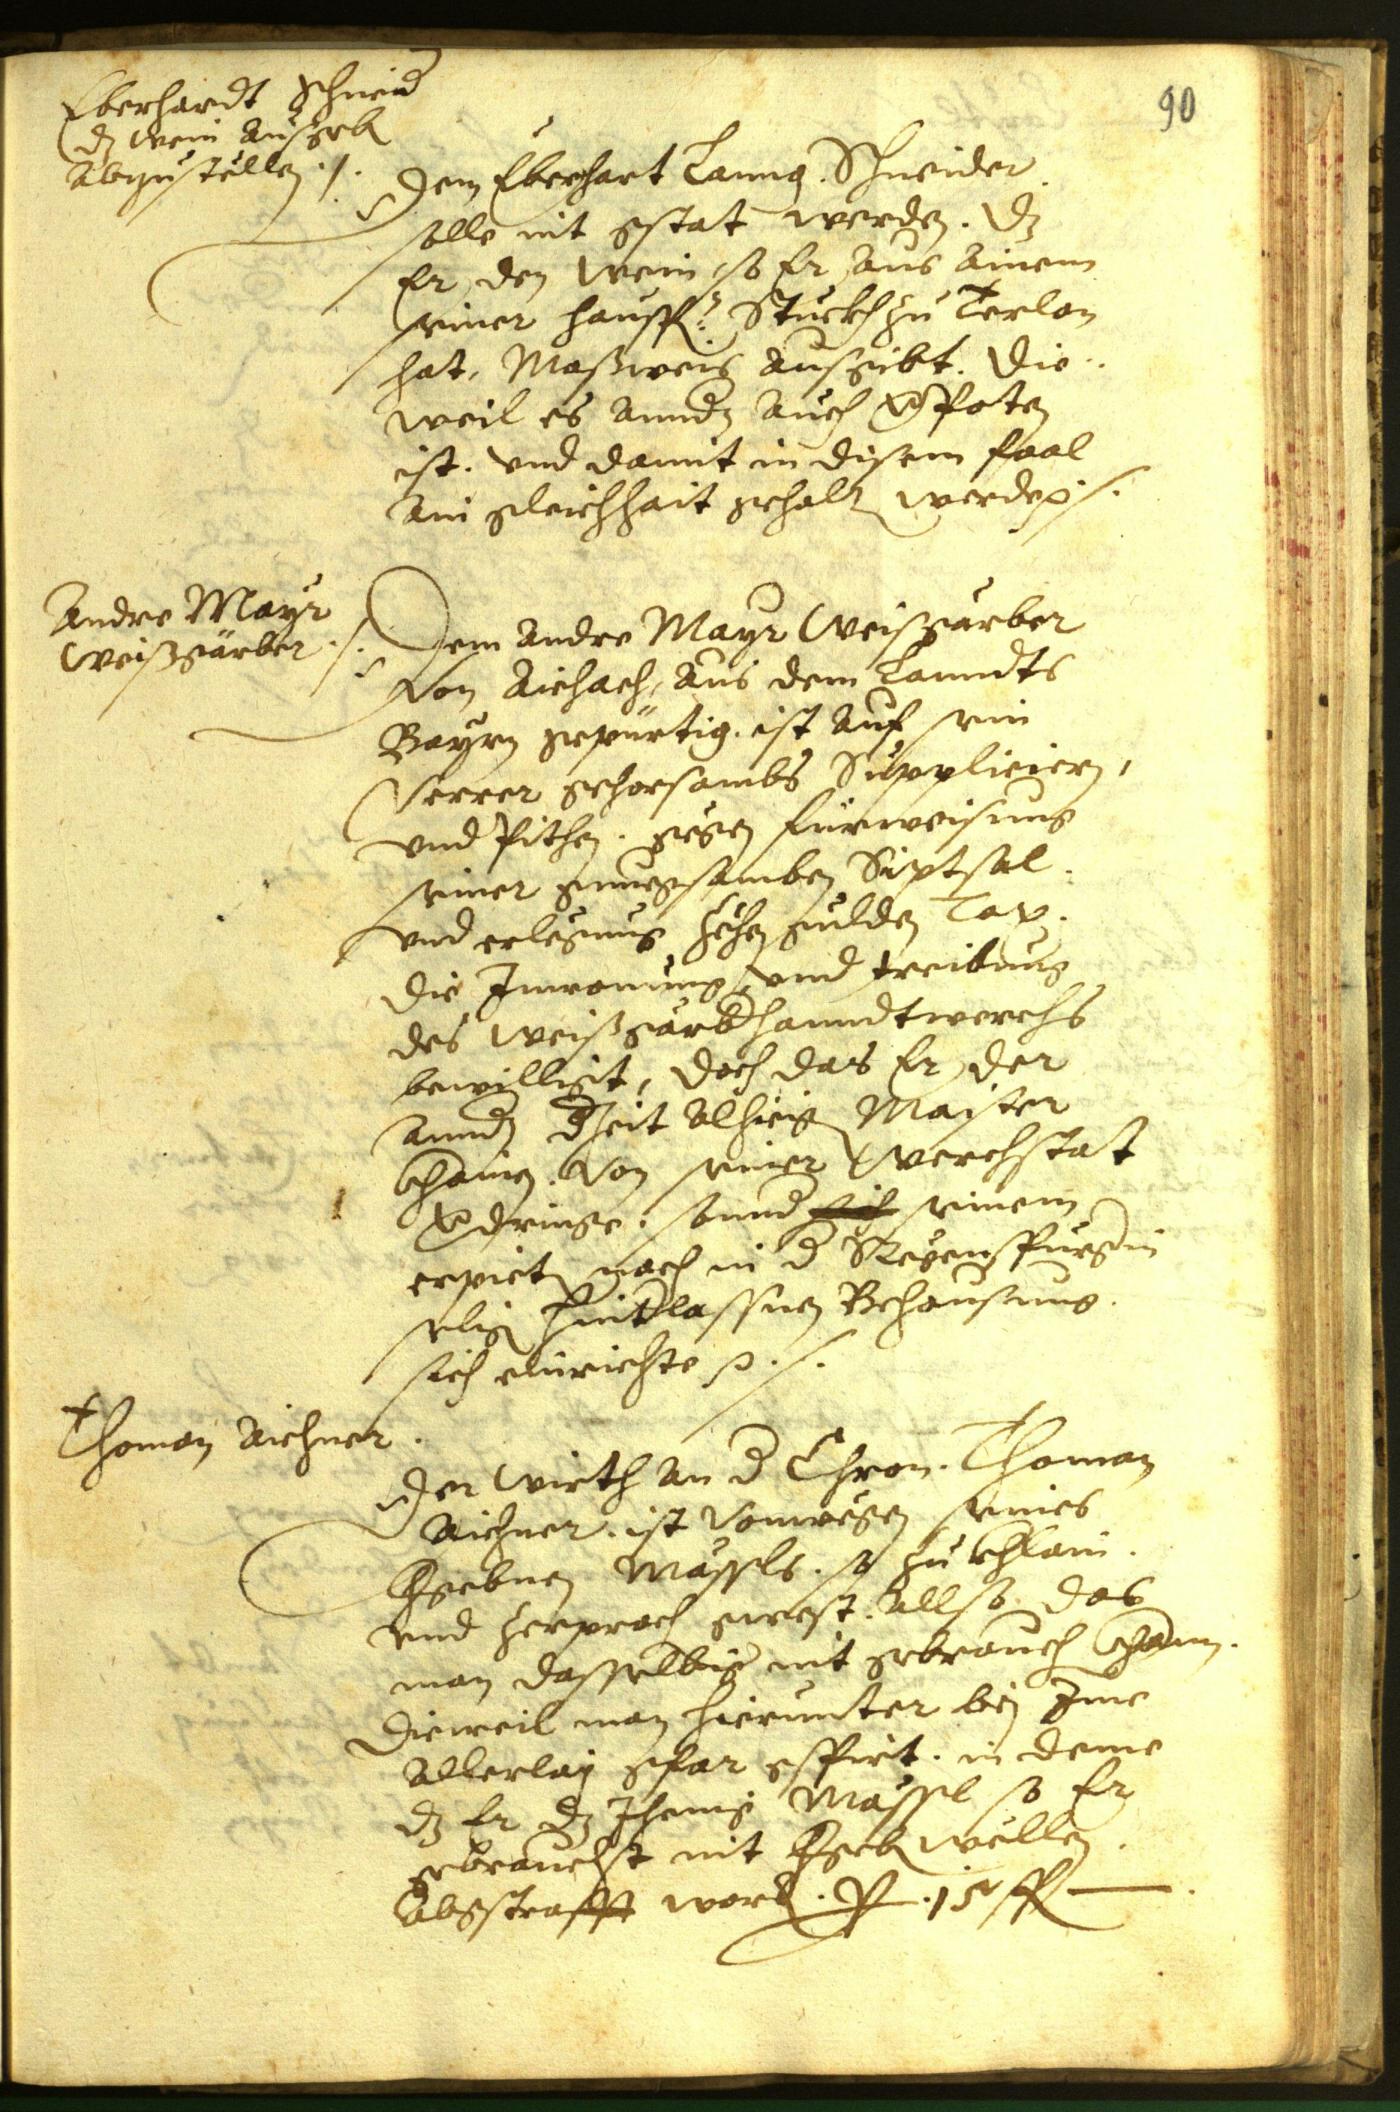 90
Eberhardt Schneid
dz wein ausgeb
abzustellen ./.
Dem Eberhart Lanng Schneider
solle nit gstat werden. dz
Er, den wein, so Er aus ainem
seiner haussf: Stuckh zu Terlan
hat, Maßweis ausgibt. Die-
weil es annd auch verpoten
ist. vnd damit in disem faal
ain gleichhait gehalt werde ./.
Andre Mayr
Weißgärber ./.
Dem Andre Mayr Weißgärber
von Aichach, aus dem Lanndts
Bayrn gepürtig. ist auf sein
ferrer gehorsambs Supplicieren,
vnd Pithen. gegen fürweisung
seiner gnuegsamben Siptsal.
vnd erlegung zehen gulden Tax.
die Inwonung, vnd treibung
des weißgärberhanndtwerchs
bewilligt, doch das Er, der
annd derzeit alhieig Maister
khainen. von seiner Werchstat
verdringe. sonnd seinem
erpieten nach in d Regenspurgerin
selig hinderlassnen Behausung.
sich einrichte ./.
Thoman Aichner.
Der Wirth an d Chron. Thoman
Aichner. ist vonwegen seines
Mässls. so zu khlain.
vnd zerproch gwest. allso das
man dasselbig nit gebrauch khann.
Dieweil man hierunter bey Ime
allerlay gfar gspürt. in deme
dz Er dz Jhenig Mässl so Er
gebraucht nit wellen
Abgstrafft word. P. 15 fl